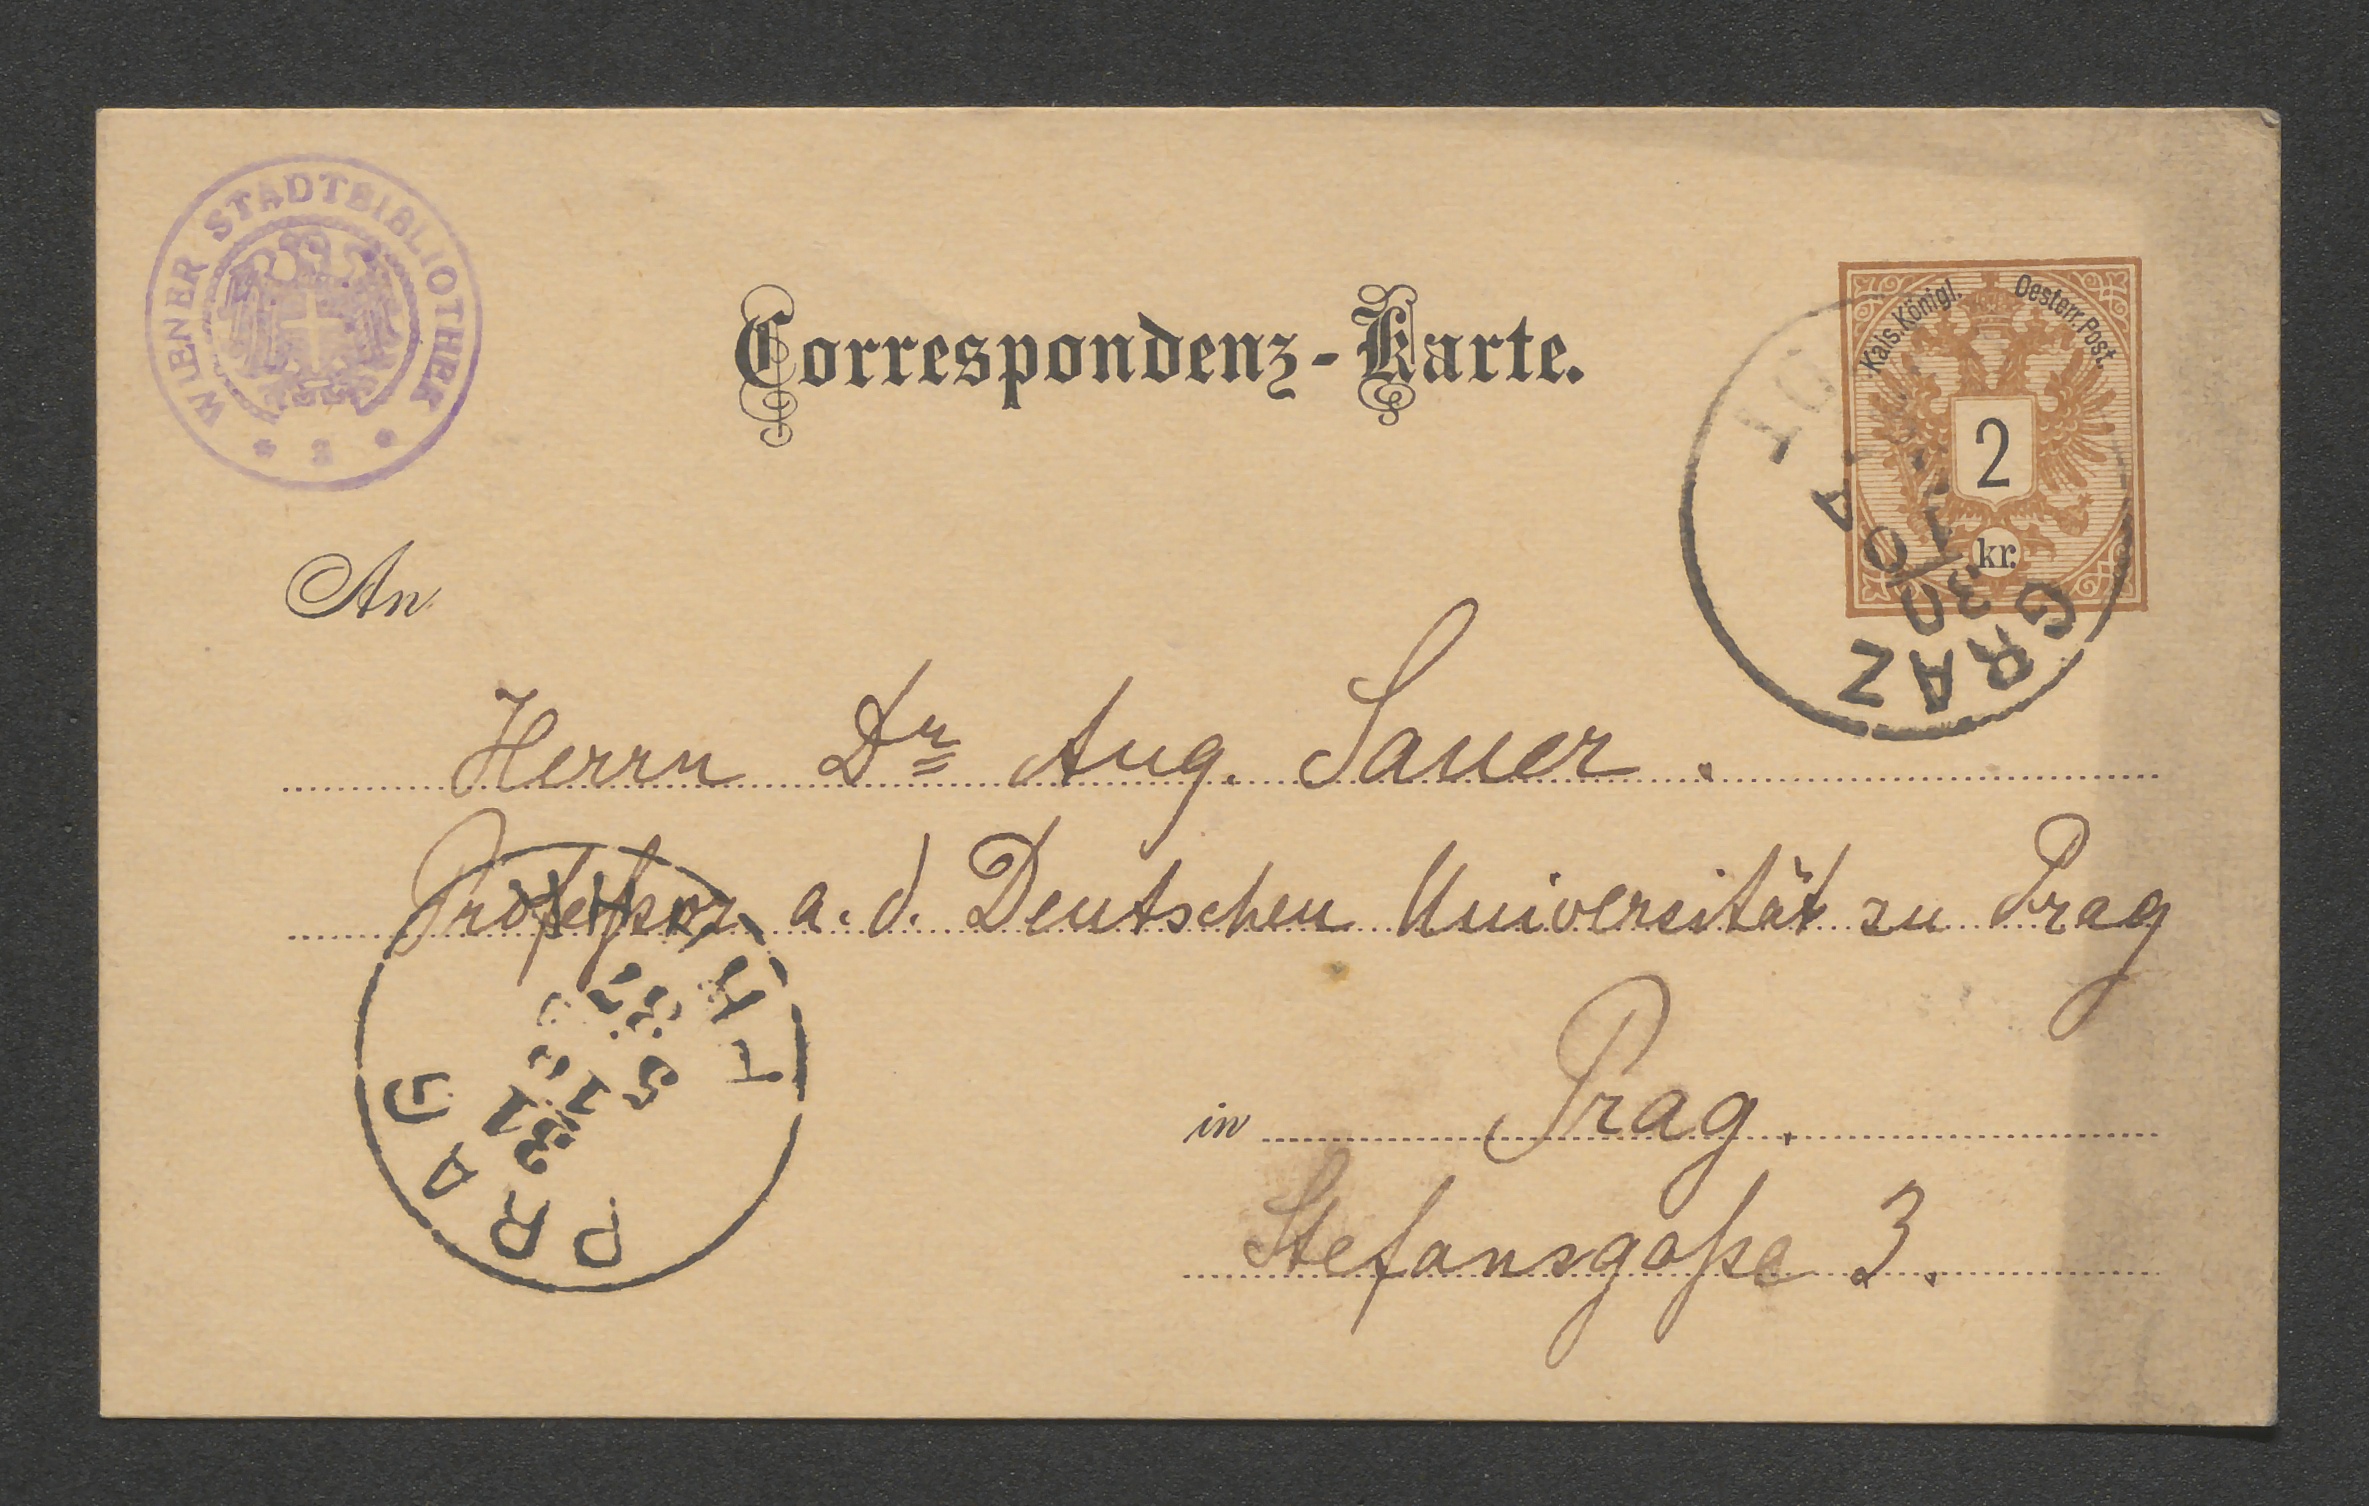 WIENER STADTBIBLIOTHEK
Correspondenz-Karte.
Kais. Königl. Oesterr. Post.
2
kr.
GRAZ
An
Herrn Dr Aug. Sauer.
Professor a. d. Deutschen Universität zu Prag
in Prag.
Stefansgasse 3.
PRAG